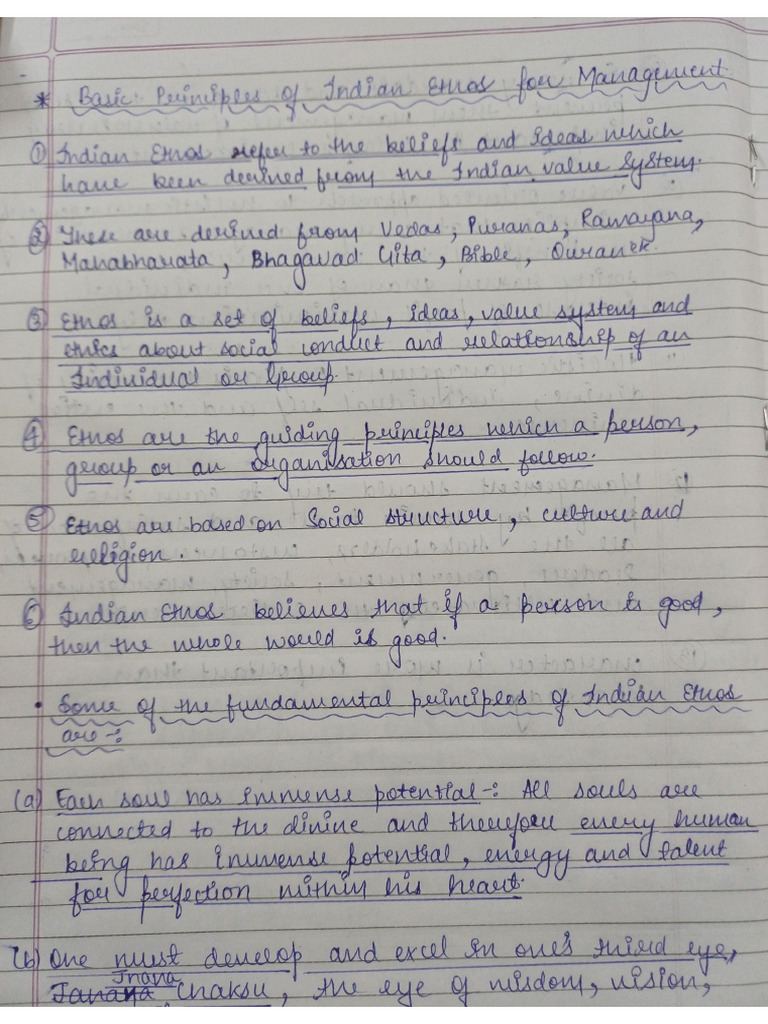 * Basic Principles of Indian Ethos for Management
① Indian Ethos refer to the beliefs and ideas which
have been derived from the Indian value system.
② These are derived from Vedas, Puranas, Ramayana,
Mahabharata, Bhagavad Gita, Bible,
③ Ethos is a set of beliefs, ideas, value system and
ethics about social conduct and relationship of an
Individual or Group.
④ Ethos are the guiding principles which a person,
group or an organisation should follow.
⑤ Ethos are based on Social structure, culture and
religion.
⑥ Indian Ethos believes that if a person is good,
then the whole world is good.
• Some of the fundamental principles of Indian Ethos
are -:
(a) Each soul has immense potential -: All souls are
connected to the divine and therefore every human
being has immense potential, energy and talent
for perfection within his heart.
(b) One must develop and excel in one's third eye,
Jnana
Janana Chaksu, the eye of wisdom, vision,